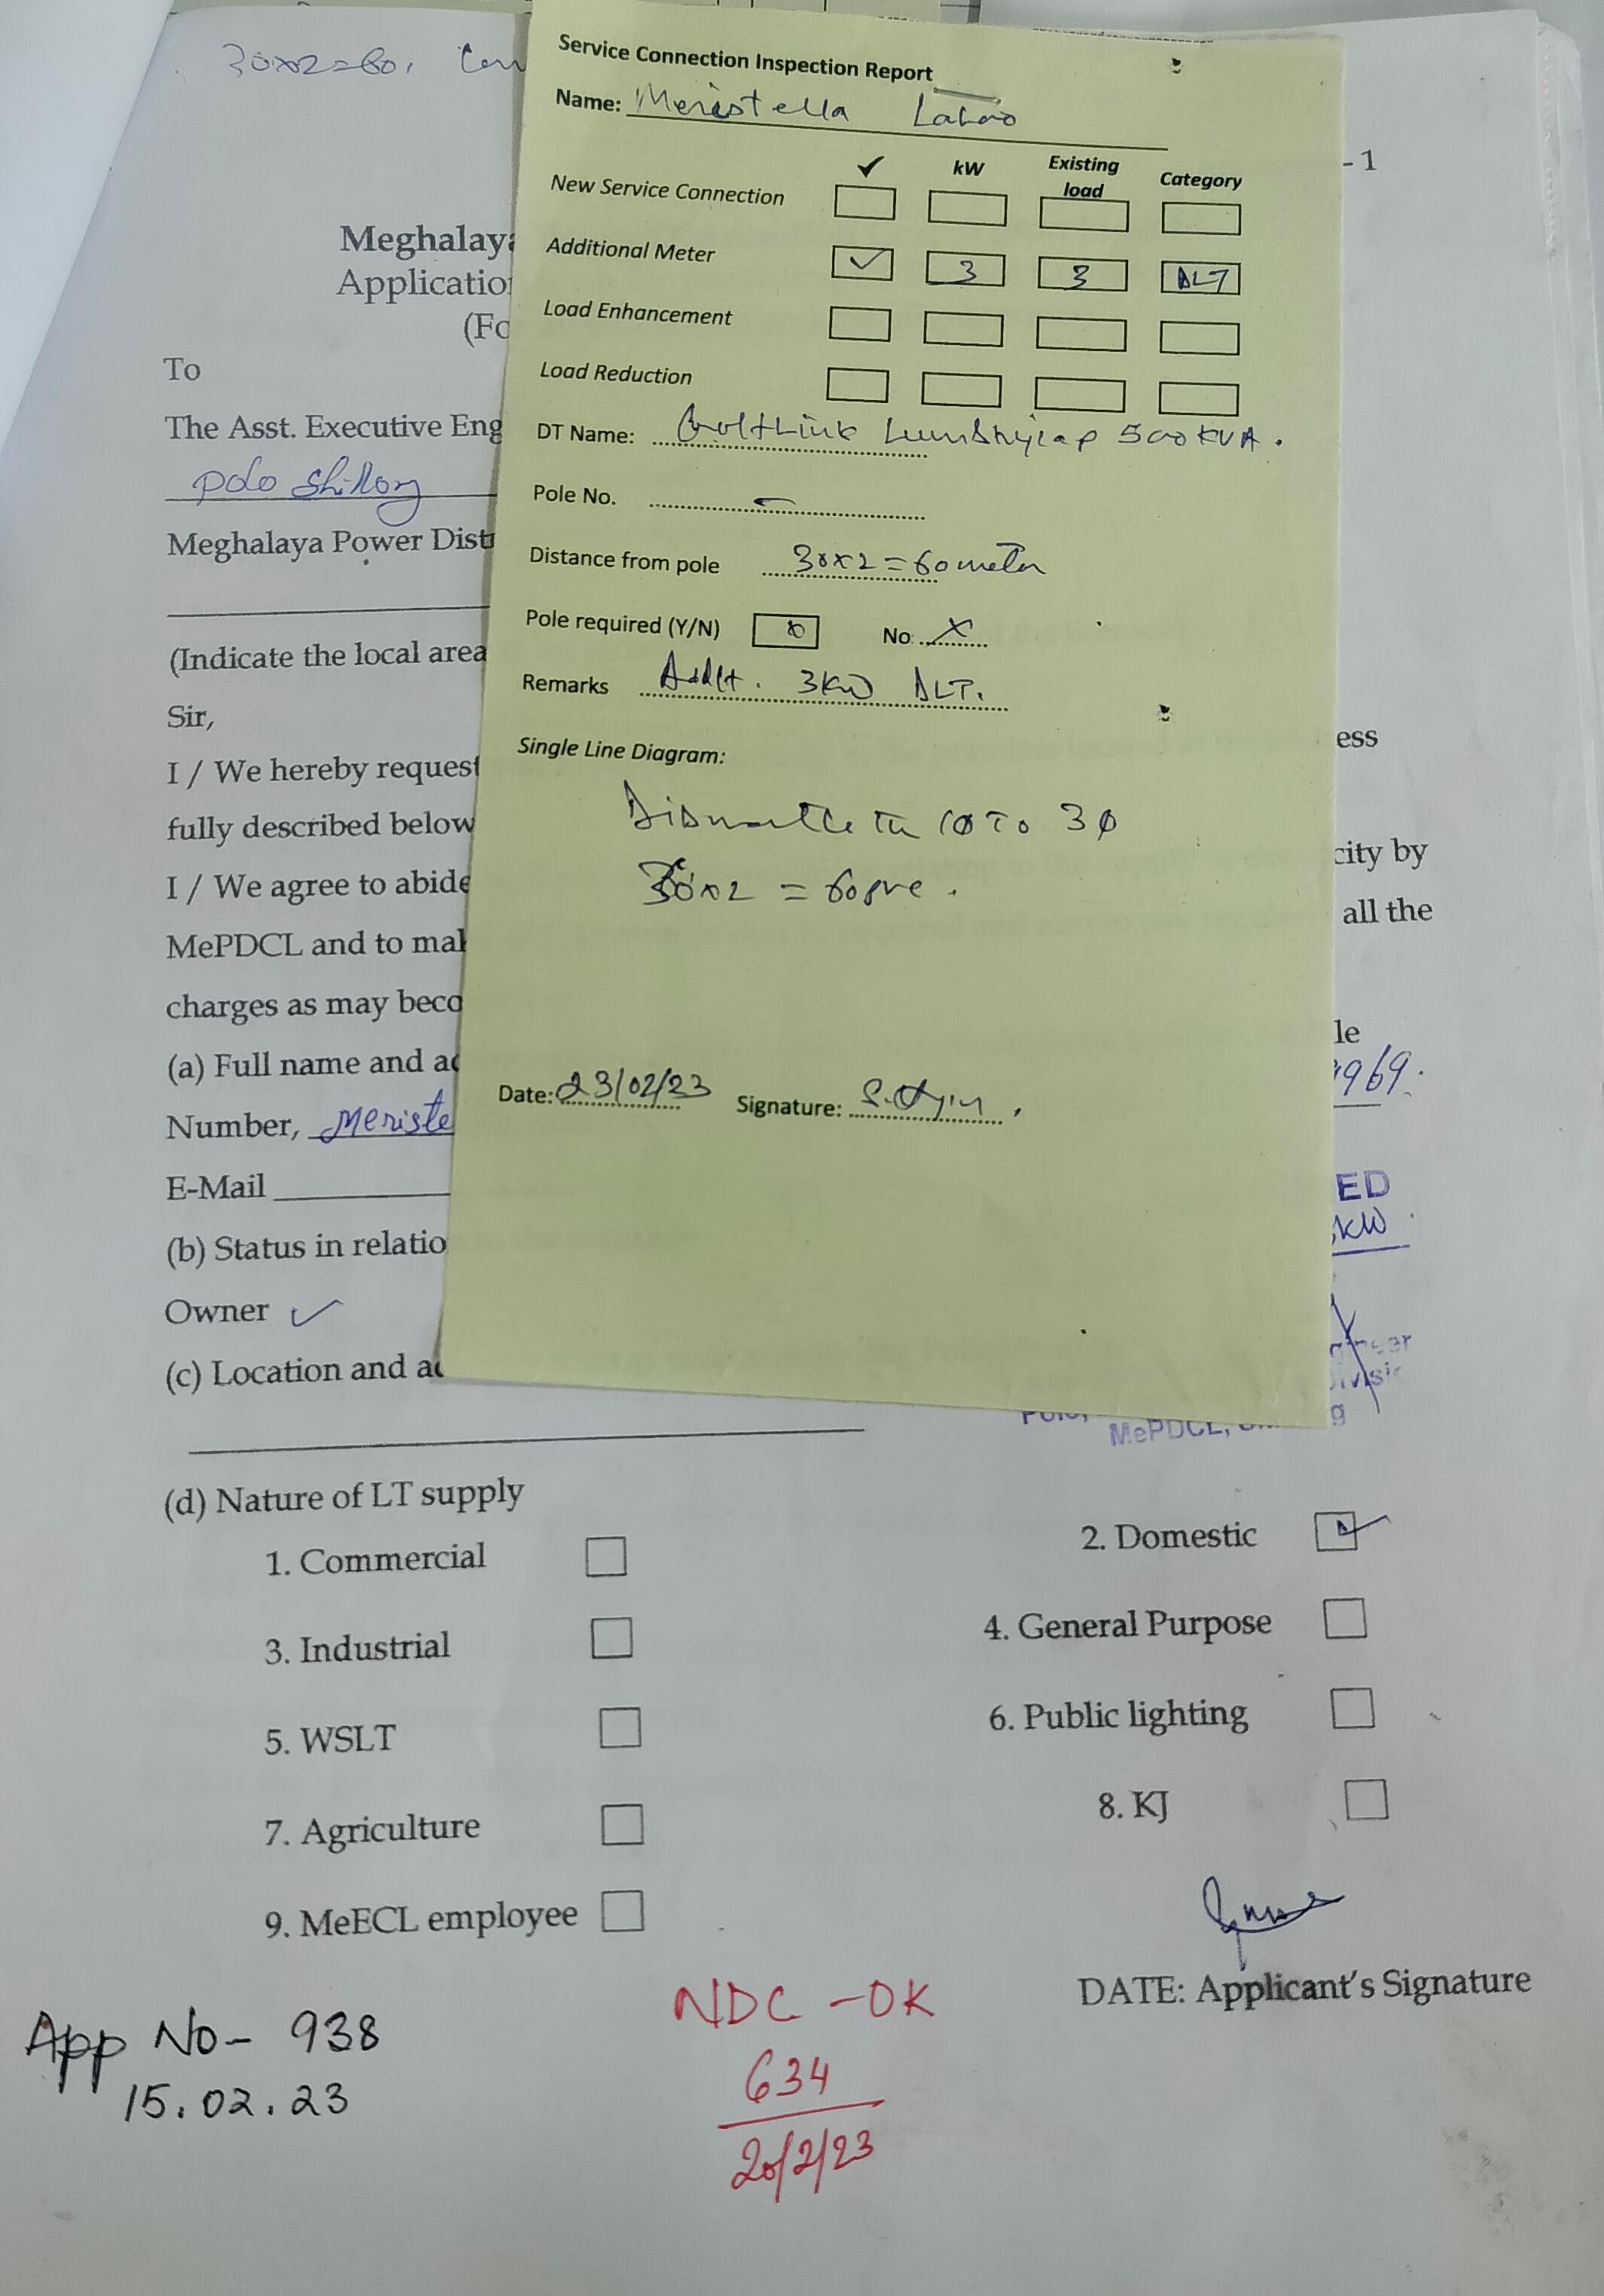 30x2=60,
Service Connection Inspection Report
Name: Meristella Lakao
✓ kW Existing load Category
New Service Connection
Additional Meter ✓ 3 3 DLT
Load Enhancement
Load Reduction
DT Name: 500 KVA.
Pole No. -
Distance from pole 30x2=60 meter
Pole required (Y/N) No. X
Remarks Addlt. 3KW DLT.
Single Line Diagram:
Dismantle the 1Ø To 3Ø
30x2 =
Date: 23/02/23 Signature:
- 1
Meghalaya
Application
(Fo
To
The Asst. Executive Eng
Polo Shillong
Meghalaya Power Dist
(Indicate the local area
Sir,
I / We hereby request ess
fully described below
I / We agree to abide city by
MePDCL and to mak all the
charges as may beco
(a) Full name and ad le
Number, Meriste 969.
E-Mail
ED
(b) Status in relatio kW
Owner ✓
(c) Location and ad
MePDCL,
(d) Nature of LT supply
1. Commercial 2. Domestic ✓
3. Industrial 4. General Purpose
5. WSLT 6. Public lighting
7. Agriculture 8. KJ
9. MeECL employee
DATE: Applicant's Signature
App No- 938
15.02.23
NDC -OK
634
20/2/23